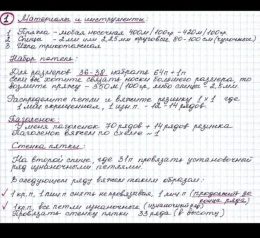 ① Материалы и инструменты:
1 Пряжа - любая носочная 400м/100гр - 420м/100гр
2 Спицы - 2мм или 2,25мм круговые 80-100см (чулочные)
3 Игла трикотажная
Набор петель:
Для размеров 36-38 набрать 64п + 1п
Если вы хотите связать носки большего размера, то
возьмите пряжу - 350м/100гр, либо спицы - 2,5мм
Распределите петли и вяжите резинку 1 х 1 где
1 лиц скрещенная, 1 изн.п. - 14 рядов
Паголенок:
У меня паголенок 70 рядов + 14 рядов резинка
Паголенок вяжем по схеме
Стенка пятки:
На второй спице, где 31п провязать установочный
ряд изнаночными петлями.
В следующем ряду вяжем таким образом:
✓ 1 кр.п, 1 лиц п снять непровязывая, 1 лиц п (продолжить до
конца ряда)
✓ 1 кр.п, все петли изнаночные (изнаночный ряд)
Провязать стенку пятки 33 ряда (в высоту)